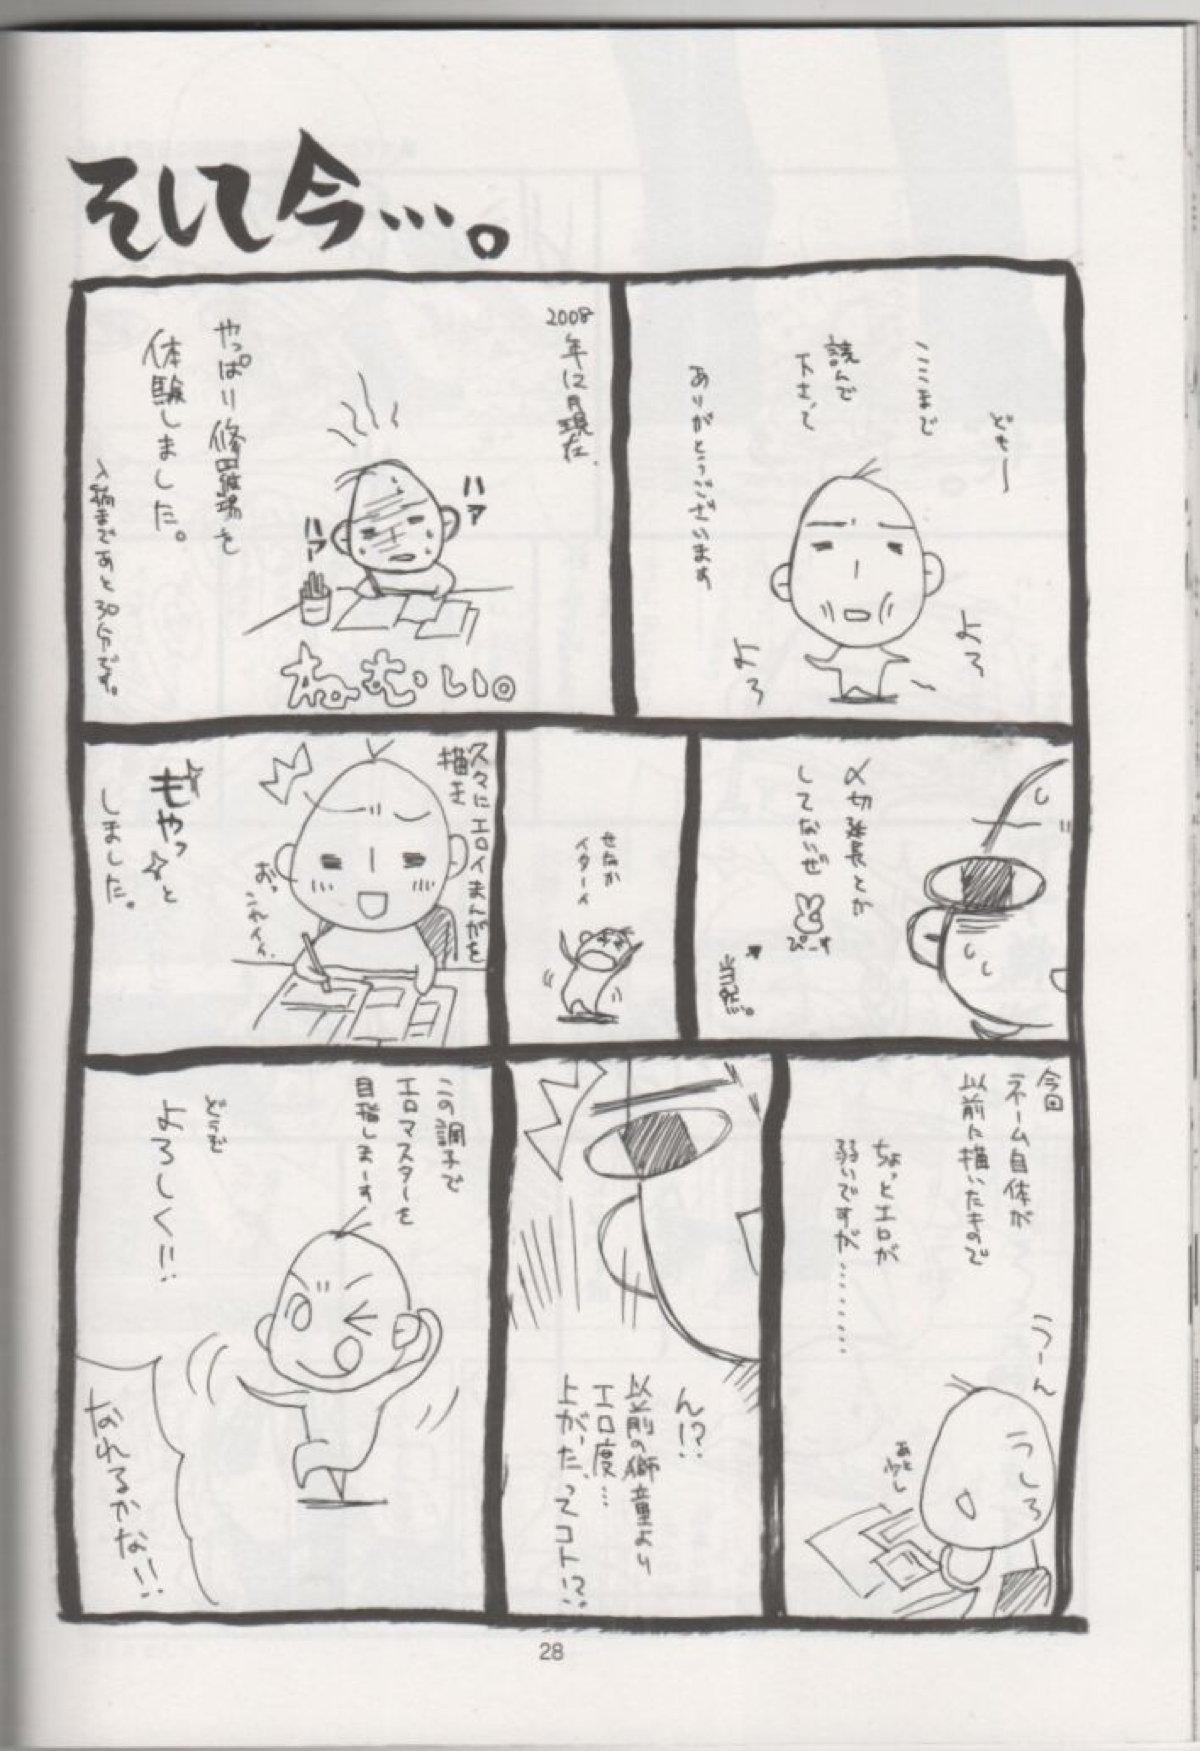 そして今…。
どもー
ここまで
読んで
下さって
ありがとうございます
よろ
よろ
2008
年12月現在、
やっぱり修羅場を
体験しました。
入稿まであと30分です。
ハァ
ハァ
ねむい。
〆切延長とか
してないぜ
ぴーす
当然。
せなか
イターイ
久々にエロイまんがを
描き
お。
これイイ。
もやっ
と
しました。
今回
ネーム自体が
以前に描いたもので
ちょっとエロが
弱いですが………
うーん
うしろ
あと
少し
ん!?
以前の獅童より
エロ度…
上がった、ってコト!?
この調子で
エロマスターを
目指しまーす
どうも
よろしく!!
なれるかな!!
28